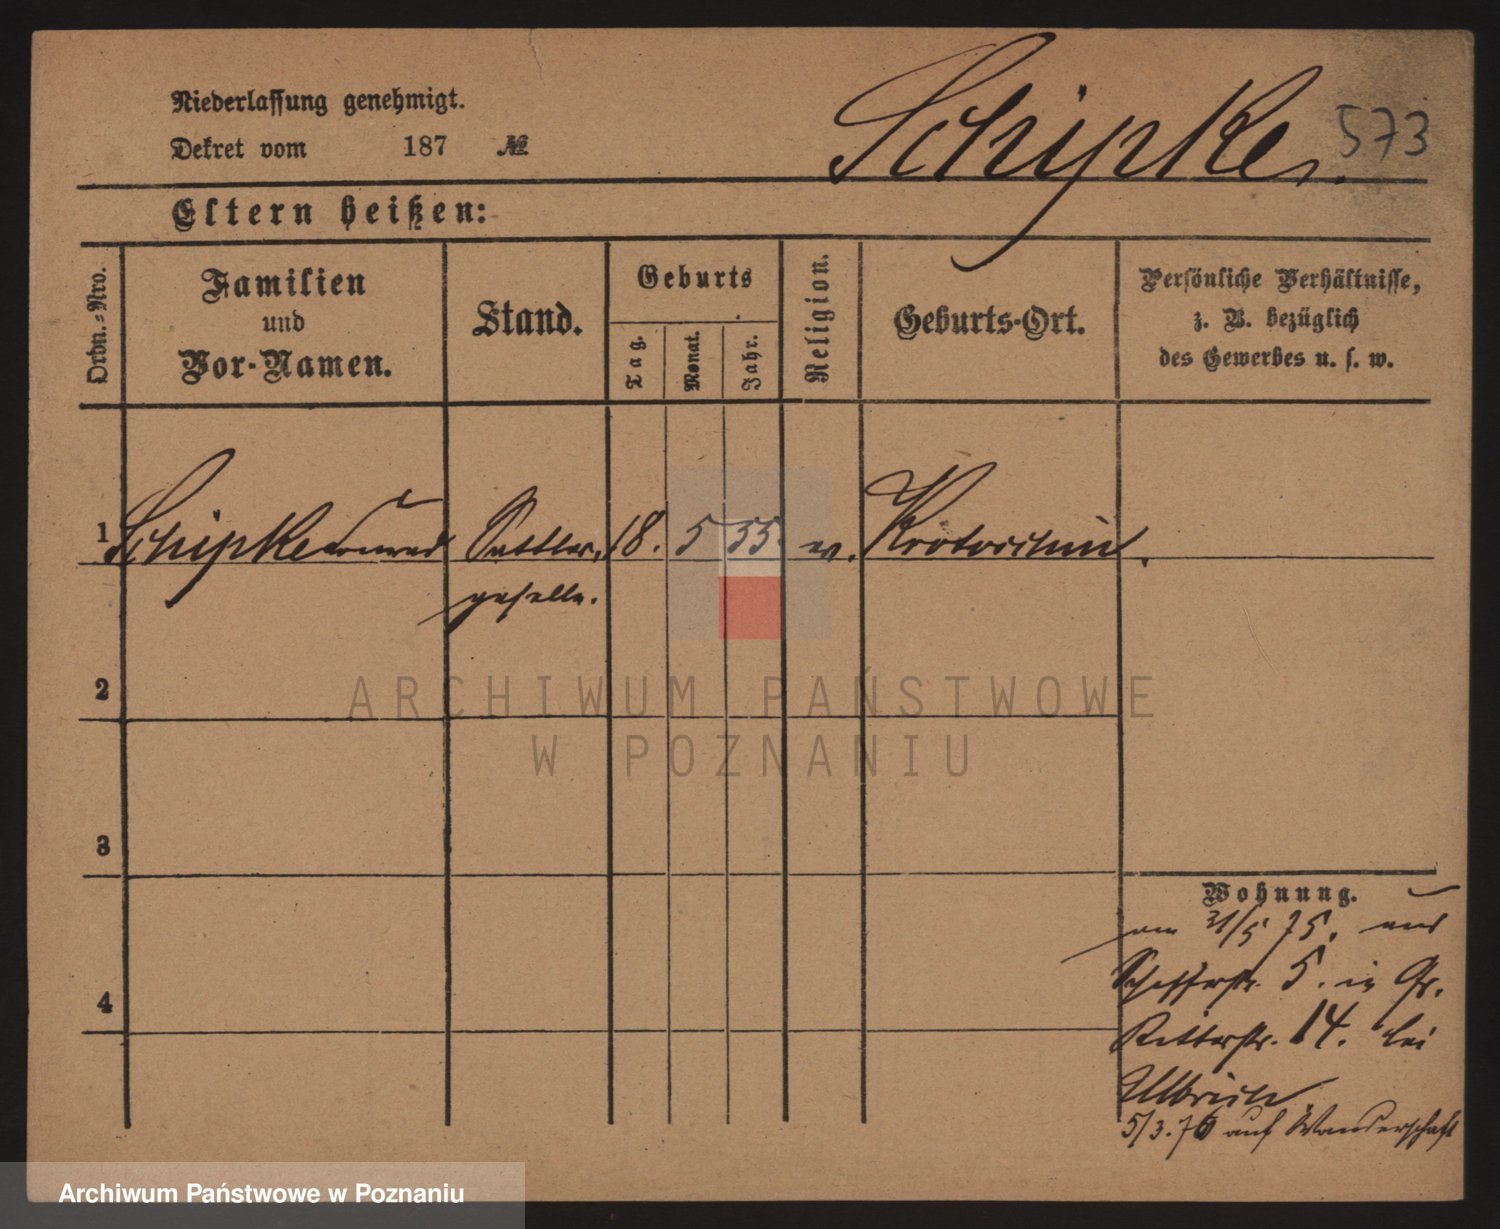 Niederlassung genehmigt.
Dekret vom 187 №
Schipke. 573
Eltern heißen:
Ordn.-Nro.
Familien
und
Vor-Namen.
Stand.
Geburts
Tag.
Monat.
Jahr.
Religion.
Geburts-Ort.
Persönliche Verhältnisse,
z. B. bezüglich
des Gewerbes u. s. w.
1 Schipke Conrad Sattler 18. 5 55. ev. Krotoschin.
geselle.
2
ARCHIWUM PAŃSTWOWE
W POZNANIU
3
Wohnung.
am 21/5 75. aus
5. in Gr.
Ritterstr. 14. bei
Ulbrich
5/3. 76 auf Wanderschaft
4
Archiwum Państwowe w Poznaniu